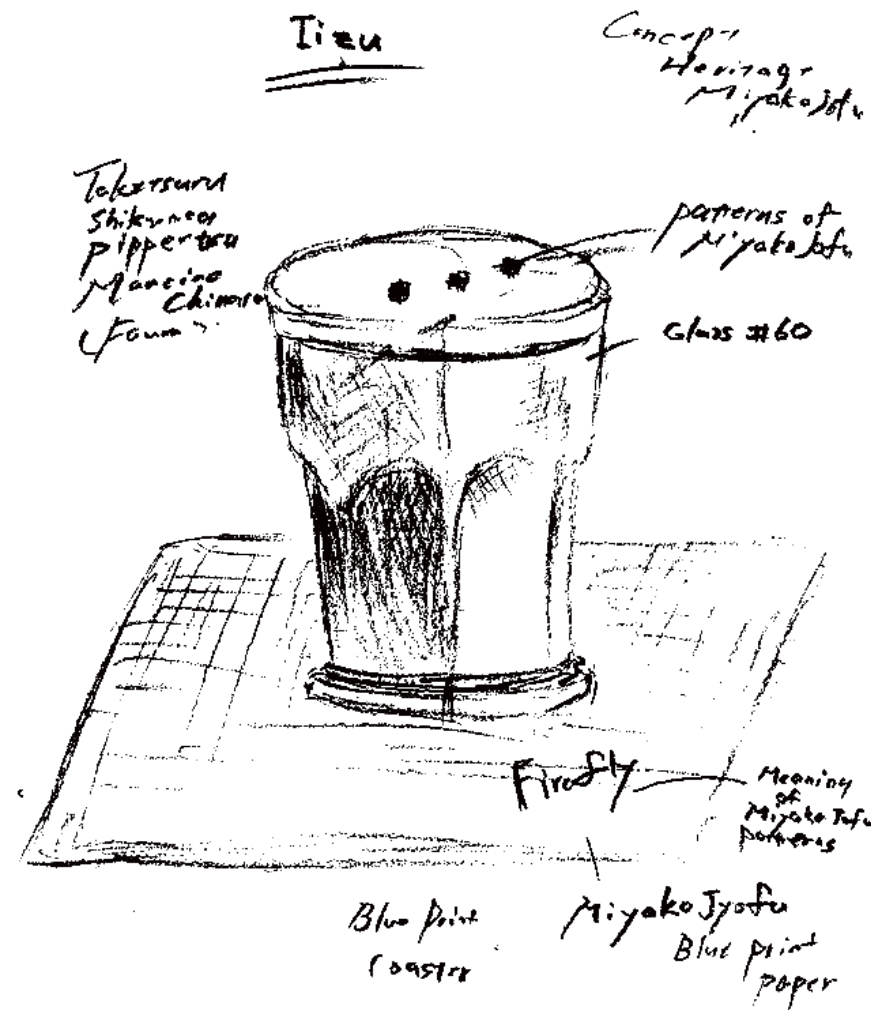 Iizu
Concept
Heritage
Miyakojofu
Taketsuru
Shikuwasa
Pippertsu
Mancino
Chinato
Foam
patterns of
Miyako Jofu
Glass #60
Firefly
Meaning
of
Miyako Jofu
patterns
Blue Print
Coaster
Miyako Jyofu
Blue print
paper